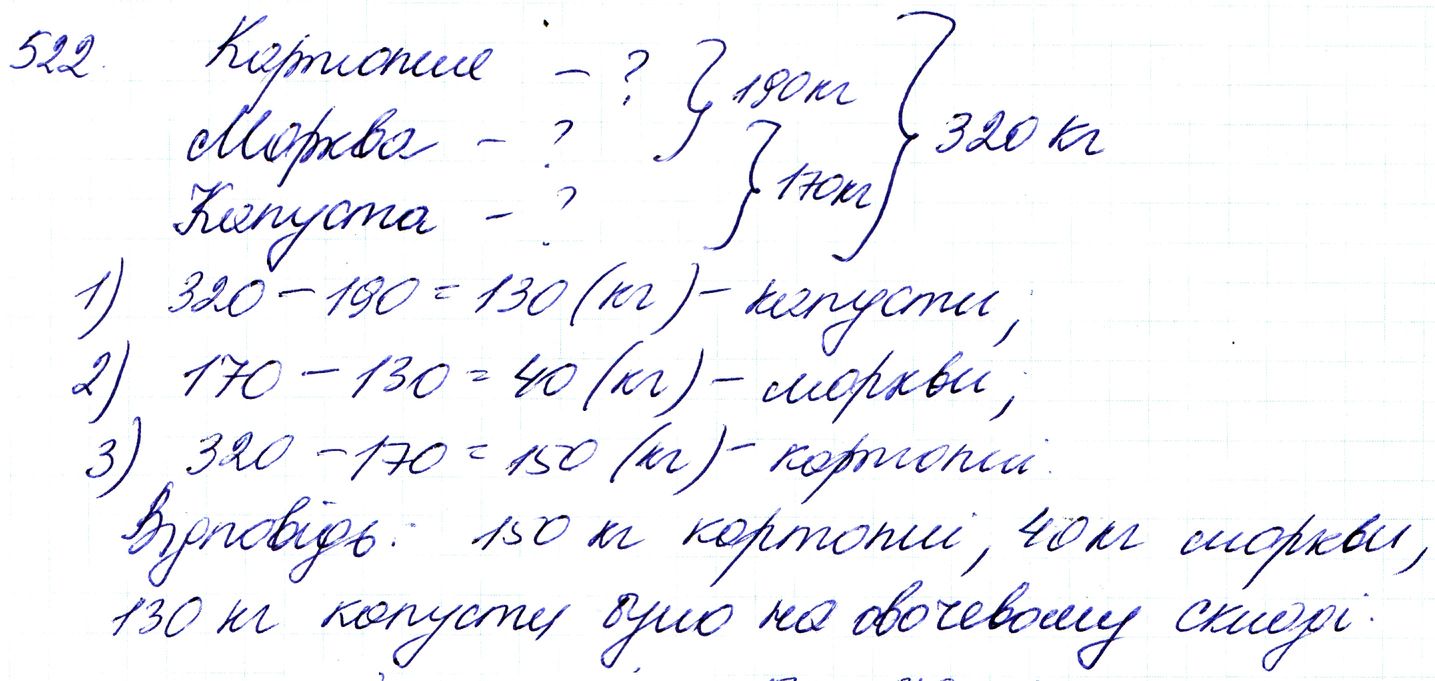 522. Картопля - ? } 190 кг } 320 кг
Морква - ?
Капуста - ? } 170 кг
1) 320 - 190 = 130 (кг) - капусти;
2) 170 - 130 = 40 (кг) - моркви;
3) 320 - 170 = 150 (кг) - картоплі.
Відповідь: 150 кг картоплі, 40 кг моркви,
130 кг капусти було на овочевому складі.